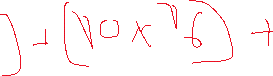 ) + (10 x 76) +